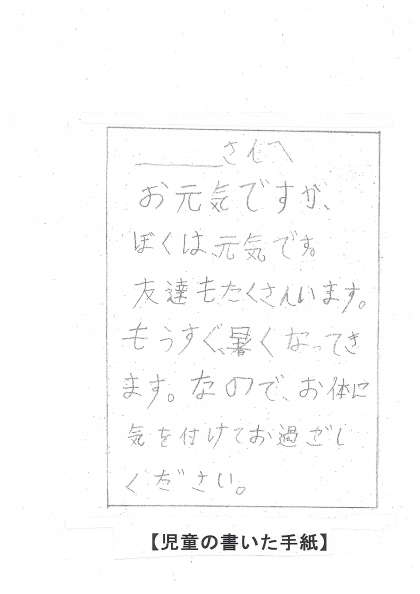 ______さんへ
お元気ですか、
ぼくは、元気です。
友達もたくさんいます。
もうすぐ、暑くなってき
ます。なので、お体に
気を付けてお過ごし
ください。
【児童の書いた手紙】